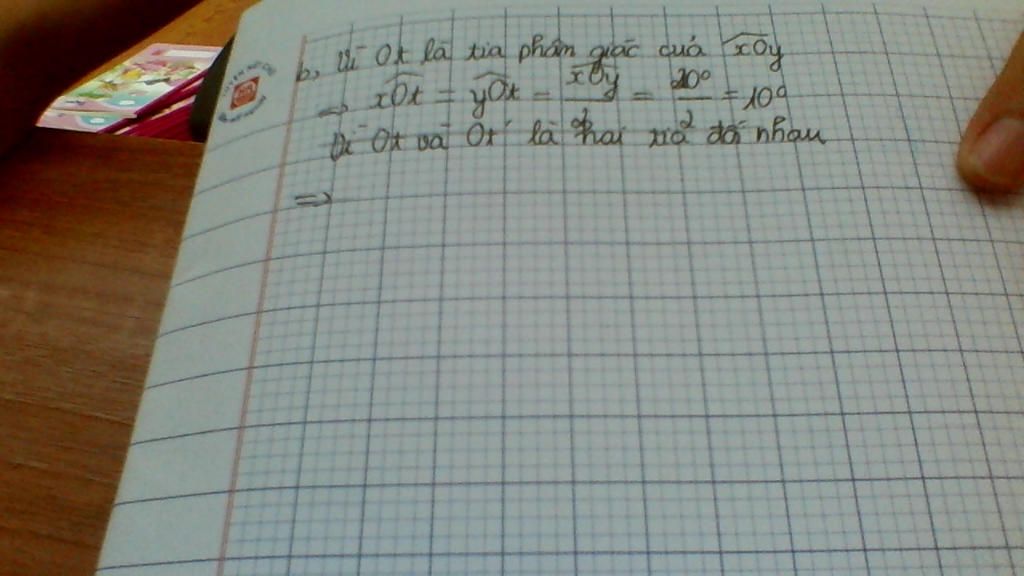 b, Vì Ot là tia phân giác của xOy
=> xOt = yOt = xOy/2 = 20°/2 = 10°
Vì Ot và Ot' là hai tia đối nhau
=>